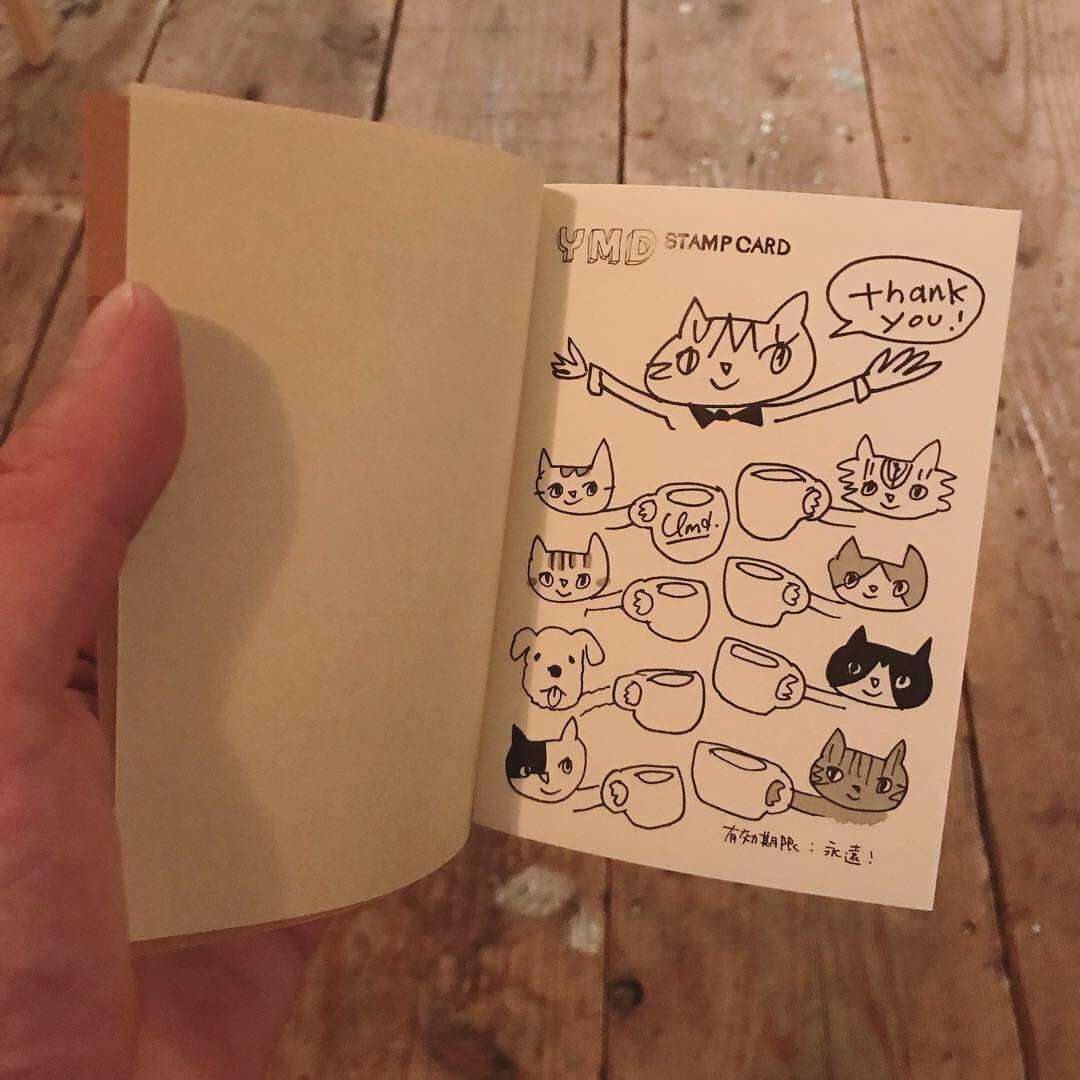 YMD STAMP CARD
thank
you!
有効期限：永遠！